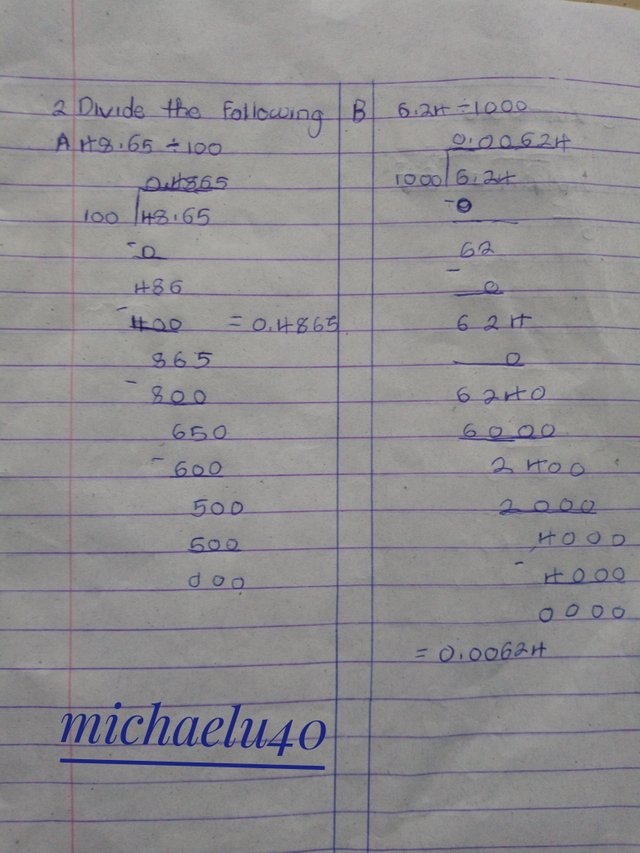 2 Divide the Following
A 48.65 ÷ 100
0.4865
100 48.65
- 0
486
- 400 = 0.4865
865
- 800
650
- 600
500
500
000
B 6.24 ÷ 1000
0.00624
1000 6.24
- 0
62
- 0
624
0
6240
6000
2400
2000
4000
- 4000
0000
= 0.00624
michaelu40